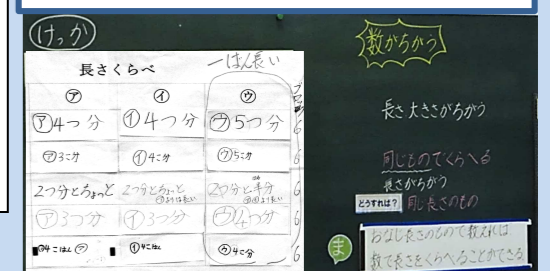 けっか
長さくらべ
一ばん長い
㋐ ㋑ ㋒
㋐4つ分 ㋑4つ分 ㋒5つ分 6
㋐3こ分 ㋑4こ分 ㋒5こ分 6
2つ分とちょっと 2つ分とちょっと 2つ分と半分 6
㋐3つ分 ㋑3つ分 ㋒4つ分 6
㋑4こ分 ㋒4こ分 6
数がちがう
長さ 大きさがちがう
同じものでくらべる
長さがちがう
どうすれば? 同じ長さのもの
ま
おなじ長さのもので数えれば
数で長さをくらべることができる